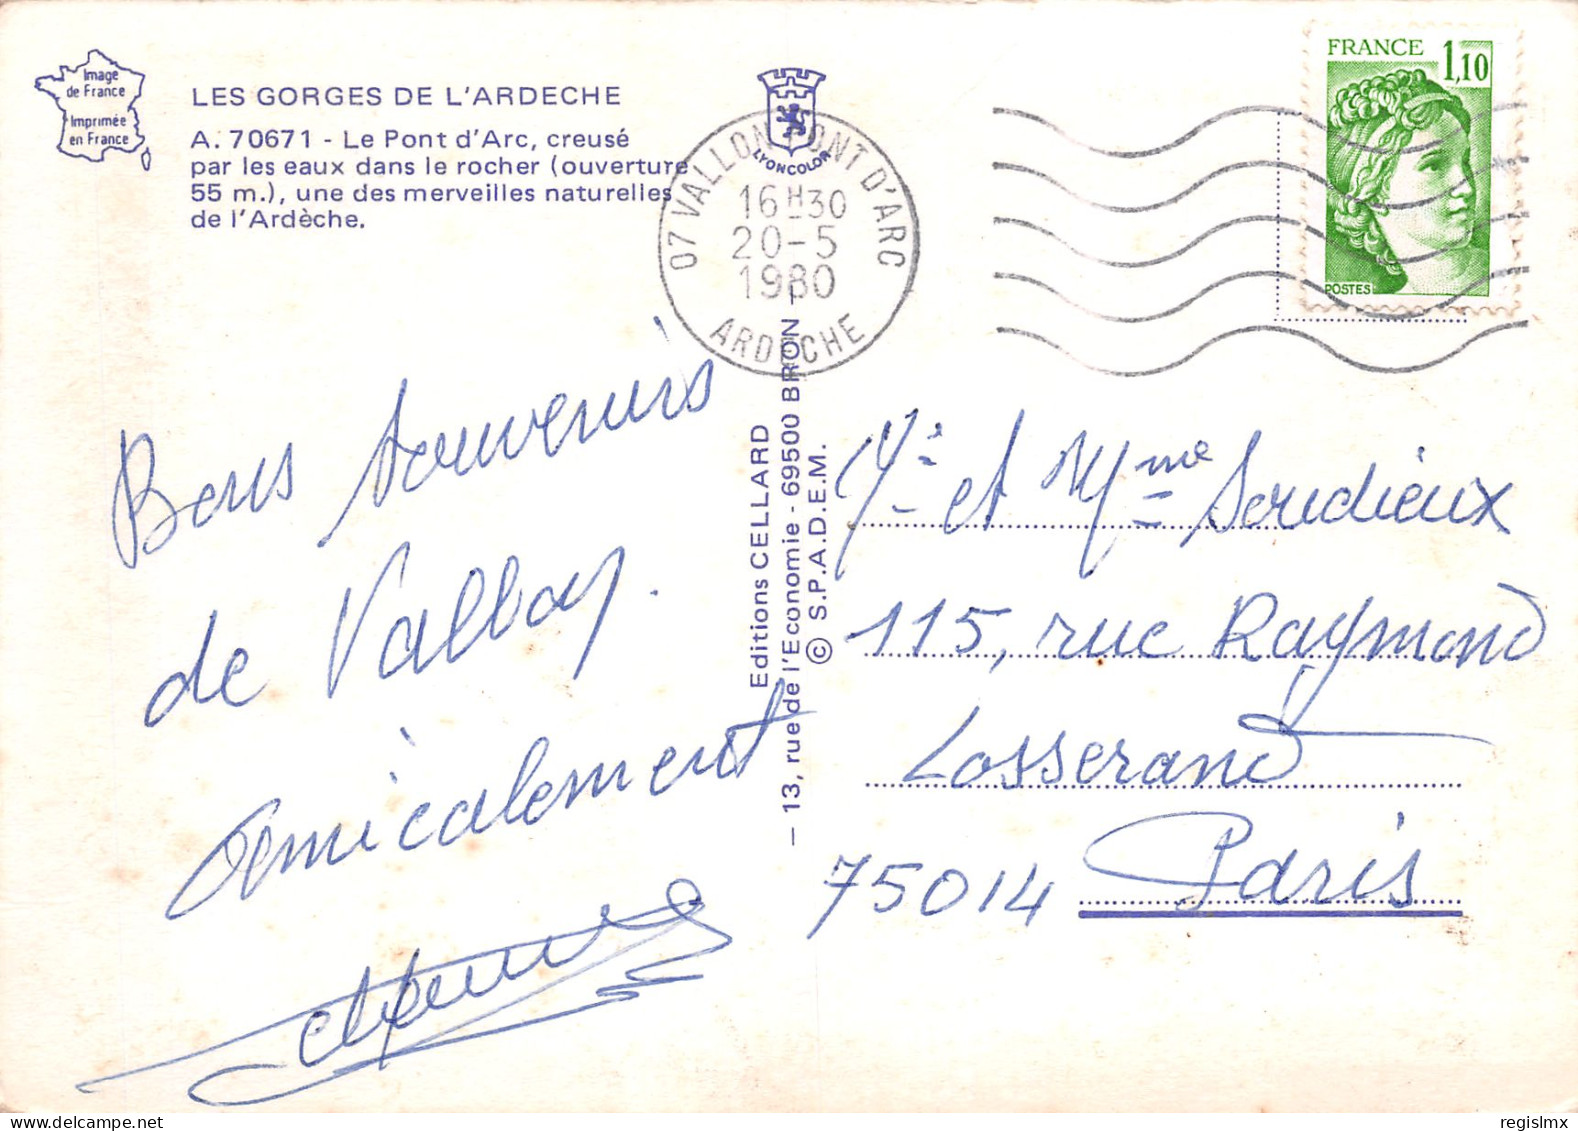 Image
de France
Imprimée
en France
LES GORGES DE L'ARDECHE
A. 70671 - Le Pont d'Arc, creusé
par les eaux dans le rocher (ouverture
55 m.), une des merveilles naturelles
de l'Ardèche.
LYONCOLOR
07 VALLON PONT D'ARC
16H30
20-5
1980
ARDECHE
FRANCE 1,10
POSTES
Bons souvenirs
de Vallon.
Amicalement
Editions CELLARD
— 13, rue de l'Economie - 69500 BRON —
© S.P.A.D.E.M.
Mr et Mme Soudieux
115, rue Raymond
Losserand
75014 Paris
regislmx